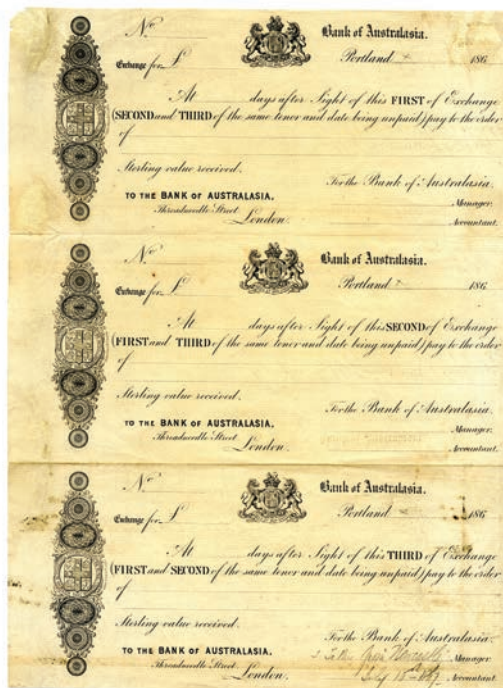 No
Bank of Australasia.
Exchange for £
Portland 186
At days after Sight of this FIRST of Exchange
(SECOND and THIRD of the same tenor and date being unpaid) pay to the order
of
Sterling value received.
For the Bank of Australasia.
TO THE BANK OF AUSTRALASIA,
Manager.
Threadneedle Street
London.
Accountant.
No
Bank of Australasia.
Exchange for £
Portland 186
At days after Sight of this SECOND of Exchange
(FIRST and THIRD of the same tenor and date being unpaid) pay to the order
of
Sterling value received.
For the Bank of Australasia.
TO THE BANK OF AUSTRALASIA,
Manager.
Threadneedle Street
London.
Accountant.
No
Bank of Australasia.
Exchange for £
Portland 186
At days after Sight of this THIRD of Exchange
(FIRST and SECOND of the same tenor and date being unpaid) pay to the order
of
Sterling value received.
For the Bank of Australasia.
TO THE BANK OF AUSTRALASIA,
Manager.
Threadneedle Street
London.
Accountant.